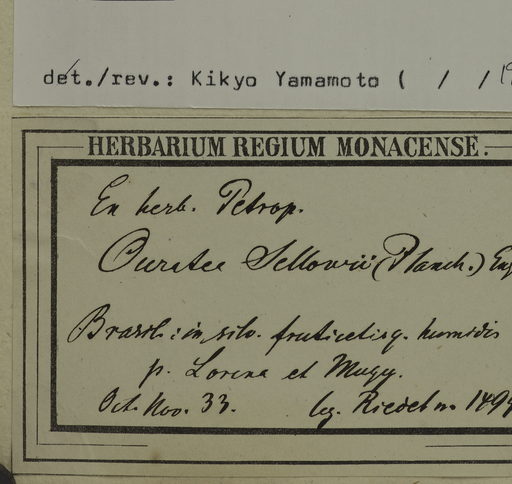 det./rev.: Kikyo Yamamoto ( / / 19
HERBARIUM REGIUM MONACENSE.
Ex herb. Petrop.
Ouratea Sellowii (Planch.) Eng
Brasil: in silv. fruticetisq. humidis
p. Lorena et Mugy.
Oct. Nov. 33. leg. Riedel n. 149